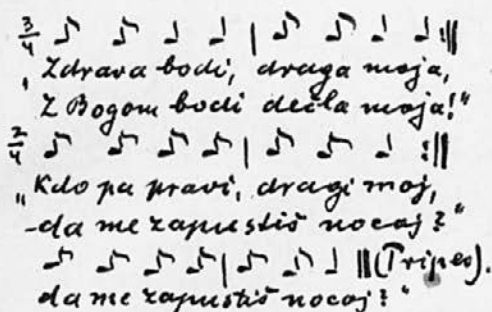 3/4
„Zdrava bodi, draga moja,
Z Bogom bodi dečla moja!“
2/4
„Kdo pa pravi, dragi moj,
-da me zapustiš nocaj?“
(Tripes).
da me zapustiš nocaj?“